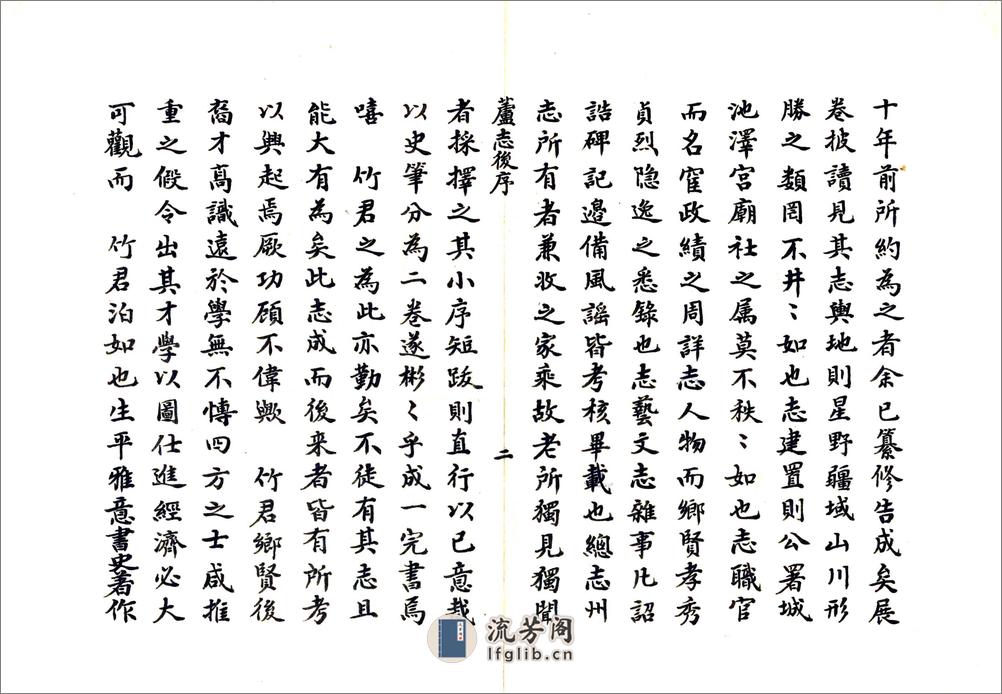 十年前所約為之者余已纂修告成矣展
卷披讀見其志輿地則星野疆域山川形
勝之類罔不井〻如也志建置則公署城
池澤宮廟社之属莫不秩〻如也志職官
而名宦政績之周詳志人物而鄉賢孝秀
貞烈隐逸之悉錄也志藝文志雜事凡詔
誥碑記邉備風謡皆考核畢載也總志州
志所有者兼收之家乘故老所獨見獨聞
蘆志後序
二
者採擇之其小序短跋則直行以已意裁
以史筆分為二卷遂彬〻乎成一完書焉
嘻　竹君之為此亦勤矣不徒有其志且
能大有為矣此志成而後来者皆有所考
以興起焉厥功顧不偉歟　竹君鄉賢後
裔才高識遠於學無不愽四方之士咸推
重之假令出其才學以圖仕進經濟必大
可觀而　竹君泊如也生平雅意書史著作
流芳阁
lfglib.cn